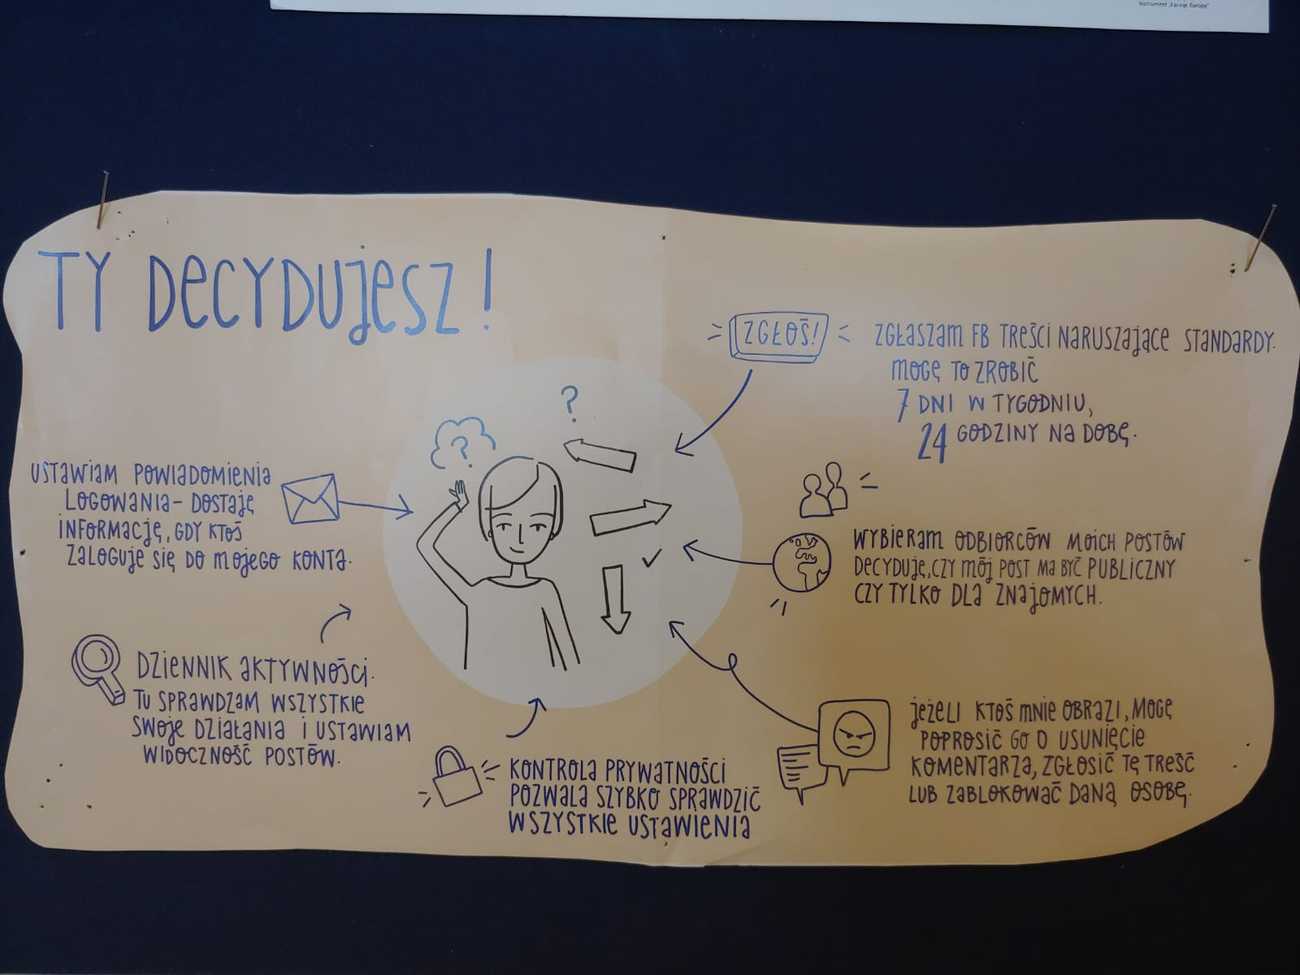 TY DECYDUJESZ!
ZGŁOŚ!
ZGŁASZAM FB TREŚCI NARUSZAJĄCE STANDARDY.
MOGĘ TO ZROBIĆ
7 DNI W TYGODNIU,
24 GODZINY NA DOBĘ.
?
?
USTAWIAM POWIADOMIENIA
LOGOWANIA - DOSTAJĘ
INFORMACJĘ, GDY KTOŚ
ZALOGUJE SIĘ DO MOJEGO KONTA.
WYBIERAM ODBIORCÓW MOICH POSTÓW
DECYDUJĘ, CZY MÓJ POST MA BYĆ PUBLICZNY
CZY TYLKO DLA ZNAJOMYCH.
DZIENNIK AKTYWNOŚCI.
TU SPRAWDZAM WSZYSTKIE
SWOJE DZIAŁANIA I USTAWIAM
WIDOCZNOŚĆ POSTÓW.
KONTROLA PRYWATNOŚCI
POZWALA SZYBKO SPRAWDZIĆ
WSZYSTKIE USTAWIENIA
JEŻELI KTOŚ MNIE OBRAZI, MOGĘ
POPROSIĆ GO O USUNIĘCIE
KOMENTARZA, ZGŁOSIĆ TĘ TREŚĆ
LUB ZABLOKOWAĆ DANĄ OSOBĘ.